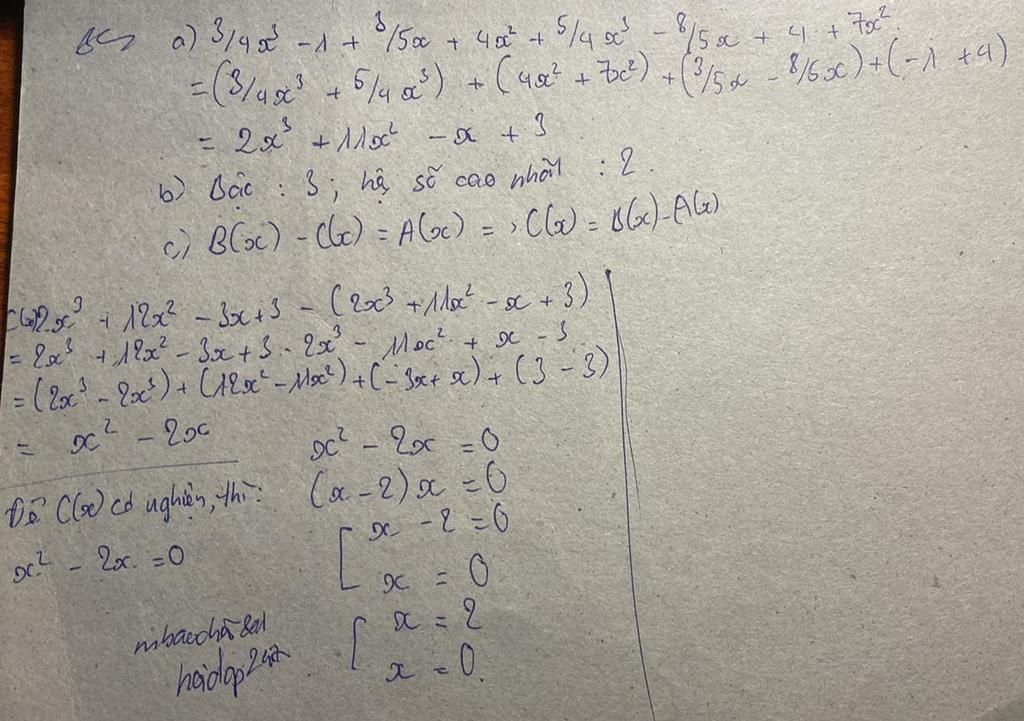 a) 3/4x³ - 1 + 3/5x + 4x² + 5/4x³ - 8/5x + 4 + 7x².
= (3/4x³ + 5/4x³) + (4x² + 7x²) + (3/5x - 8/5x) + (-1 + 4)
= 2x³ + 11x² - x + 3
b) Bậc : 3 ; hệ số cao nhất : 2.
c) B(x) - C(x) = A(x) => C(x) = B(x) - A(x)
C(x)=2x³ + 12x² - 3x + 3 - (2x³ + 11x² - x + 3)
= 2x³ + 12x² - 3x + 3 - 2x³ - 11x² + x - 3
= (2x³ - 2x³) + (12x² - 11x²) + (-3x + x) + (3 - 3)
= x² - 2x
Để C(x) có nghiệm, thì:
x² - 2x = 0
x² - 2x = 0
(x - 2)x = 0
[ x - 2 = 0
x = 0
[ x = 2
x = 0.
hoidap247